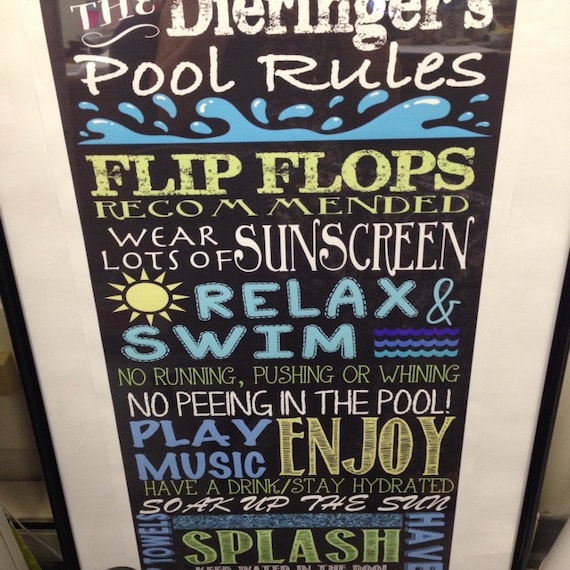 THE DIERINGER'S
Pool Rules
FLIP FLOPS
RECOMMENDED
WEAR LOTS OF SUNSCREEN
RELAX &
SWIM
NO RUNNING, PUSHING OR WHINING
NO PEEING IN THE POOL!
PLAY MUSIC ENJOY
HAVE A DRINK/STAY HYDRATED
SOAK UP THE SUN
TOWELS
SPLASH
HAVE
KEEP WATER IN THE POOL